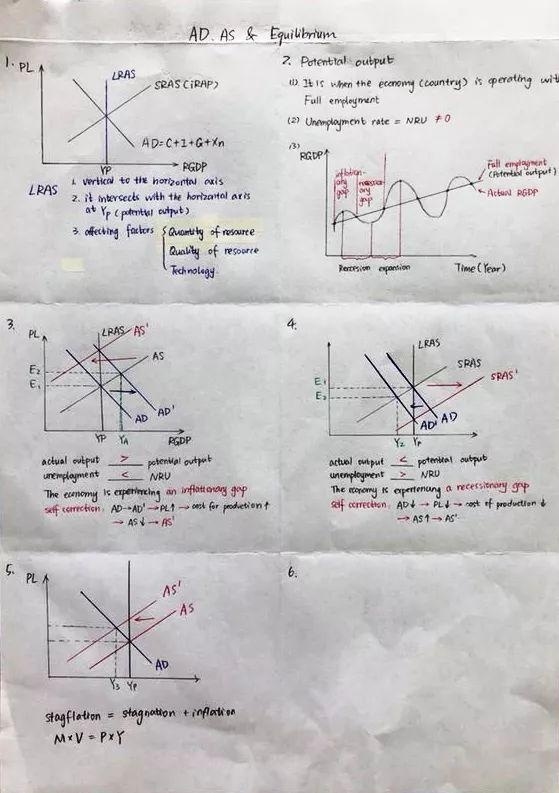 AD. AS & Equilibrium
1.
PL
LRAS
SRAS (iRAP)
AD=C+I+G+Xn
YP
RGDP
LRAS
1. vertical to the horizontal axis
2. it intersects with the horizontal axis
at Yp (potential output)
3. affecting factors { Quantity of resource
Quality of resource
Technology.
2. Potential output
(1). It is when the economy (country) is operating wit
Full employment
(2) Unemployment rate = NRU ≠0
(3)
RGDP
inflation-
ary
gap
recession-
ary
gap
Full employment
(Potential output)
Actual RGDP
Recession expansion
Time (Year)
3.
PL
LRAS
AS'
AS
E2
E1
AD'
AD
YP
YA
RGDP
actual output > potential output
unemployment < NRU
The economy is experiencing an inflationary gap
self correction: AD→AD' → PL↑ → cost for production↑
→ AS↓ → AS'
4.
LRAS
SRAS
SRAS'
E1
E2
AD' AD
Y2 Yp
actual output < potential output
unemployment > NRU
The economy is experiencing a recessionary gap
self correction: AD↓ → PL↓ → cost of production ↓
→ AS↑ → AS'
5.
PL
AS'
AS
AD
Y3 Yp
stagflation = stagnation + inflation
M×V = P×Y
6.